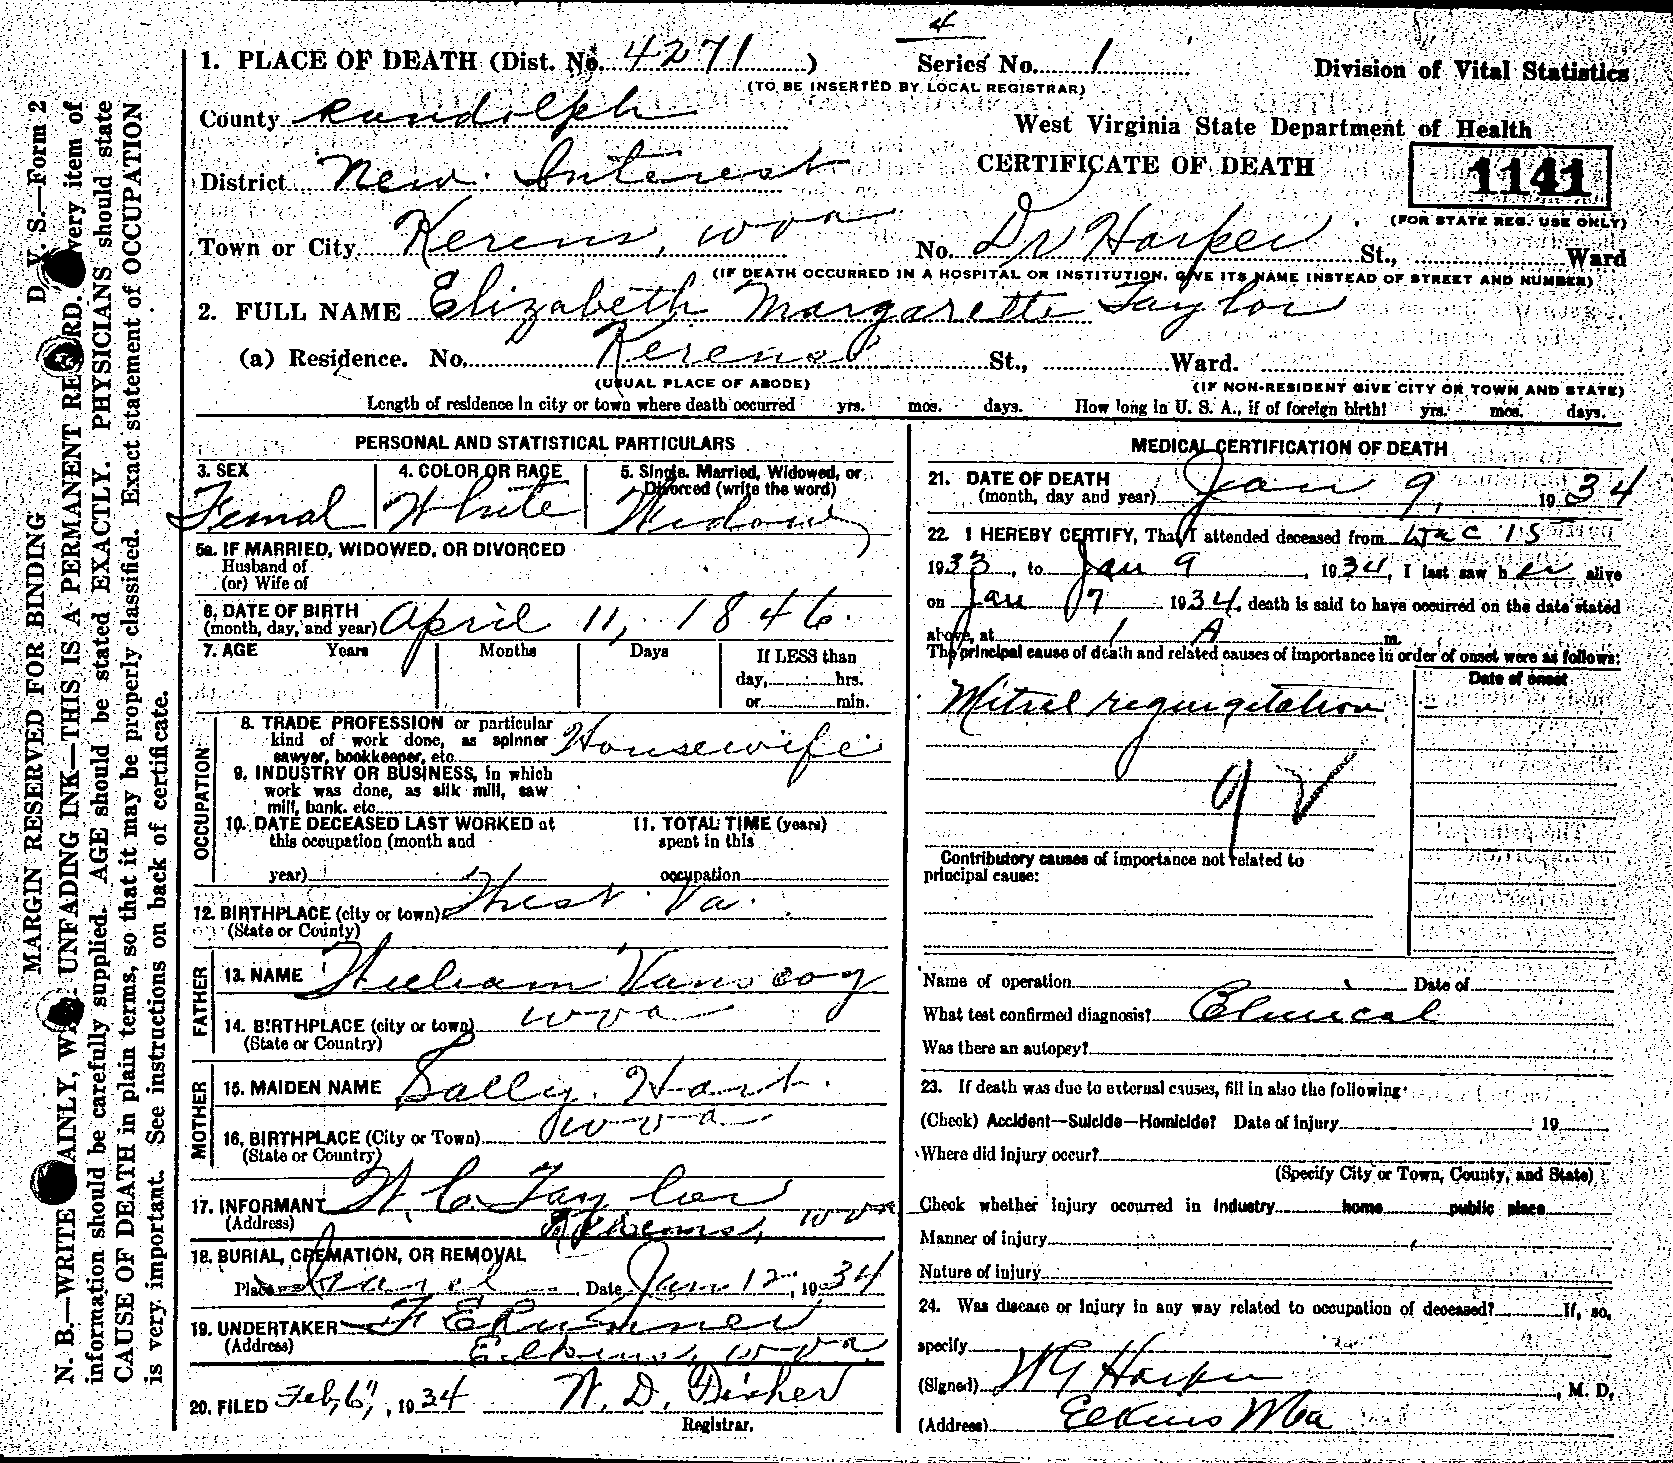 4
1. PLACE OF DEATH (Dist. No. 4271 )
Series No. 1
(TO BE INSERTED BY LOCAL REGISTRAR)
Division of Vital Statistics
County Randolph
West Virginia State Department of Health
District New Interest
CERTIFICATE OF DEATH
1141
(FOR STATE REG. USE ONLY)
Town or City Kerens, W Va
No. Dr Harper St., Ward
(IF DEATH OCCURRED IN A HOSPITAL OR INSTITUTION, GIVE ITS NAME INSTEAD OF STREET AND NUMBER)
2. FULL NAME Elizabeth Margarette Taylor
(a) Residence. No. Kerens St., Ward.
(USUAL PLACE OF ABODE) (IF NON-RESIDENT GIVE CITY OR TOWN AND STATE)
Length of residence in city or town where death occurred yrs. mos. days. How long in U. S. A., if of foreign birth? yrs. mos. days.
PERSONAL AND STATISTICAL PARTICULARS
3. SEX 4. COLOR OR RACE 5. Single, Married, Widowed, or
Divorced (write the word)
Femal White Widow
5a. IF MARRIED, WIDOWED, OR DIVORCED
Husband of
(or) Wife of
6. DATE OF BIRTH
(month, day, and year) April 11, 1846.
7. AGE Years Months Days If LESS than
day, hrs.
or min.
OCCUPATION
8. TRADE PROFESSION or particular
kind of work done, as spinner
sawyer, bookkeeper, etc. Housewife
9. INDUSTRY OR BUSINESS, in which
work was done, as silk mill, saw
mill, bank, etc.
10. DATE DECEASED LAST WORKED at 11. TOTAL TIME (years)
this occupation (month and spent in this
year) occupation
12. BIRTHPLACE (city or town) West Va.
(State or County)
FATHER
13. NAME William Vanscoy
14. BIRTHPLACE (city or town) W Va
(State or Country)
MOTHER
15. MAIDEN NAME Sally Hart.
16. BIRTHPLACE (City or Town) W Va
(State or Country)
17. INFORMANT W. C. Taylor
(Address) Elkins, W Va
18. BURIAL, CREMATION, OR REMOVAL
Place Date Jan 12, 1934
19. UNDERTAKER F E Runner
(Address) Elkins, W Va
20. FILED Feb, 6", 1934 W. D. Disher
Registrar.
MEDICAL CERTIFICATION OF DEATH
21. DATE OF DEATH
(month, day and year) Jan 9, 1934
22. I HEREBY CERTIFY, That I attended deceased from Dec 15
1933, to Jan 9, 1934, I last saw her alive
on Jan 7 1934, death is said to have occurred on the date stated
above, at 1 A m.
The principal cause of death and related causes of importance in order of onset were as follows:
Date of onset
Mitrel regurgetation
Contributory causes of importance not related to
principal cause:
Name of operation Date of
What test confirmed diagnosis? Clinical
Was there an autopsy?
23. If death was due to external causes, fill in also the following:
(Check) Accident—Suicide—Homicide? Date of injury 19
Where did injury occur?
(Specify City or Town, County, and State)
Check whether injury occurred in industry home public place
Manner of injury
Nature of injury
24. Was disease or injury in any way related to occupation of deceased? If, so,
specify
(Signed) W G Harper, M. D.
(Address) Elkins W Va
MARGIN RESERVED FOR BINDING D. V. S.—Form 2
N. B.—WRITE PLAINLY, WITH UNFADING INK—THIS IS A PERMANENT RECORD. Every item of
information should be carefully supplied. AGE should be stated EXACTLY. PHYSICIANS should state
CAUSE OF DEATH in plain terms, so that it may be properly classified. Exact statement of OCCUPATION
is very important. See instructions on back of certificate.